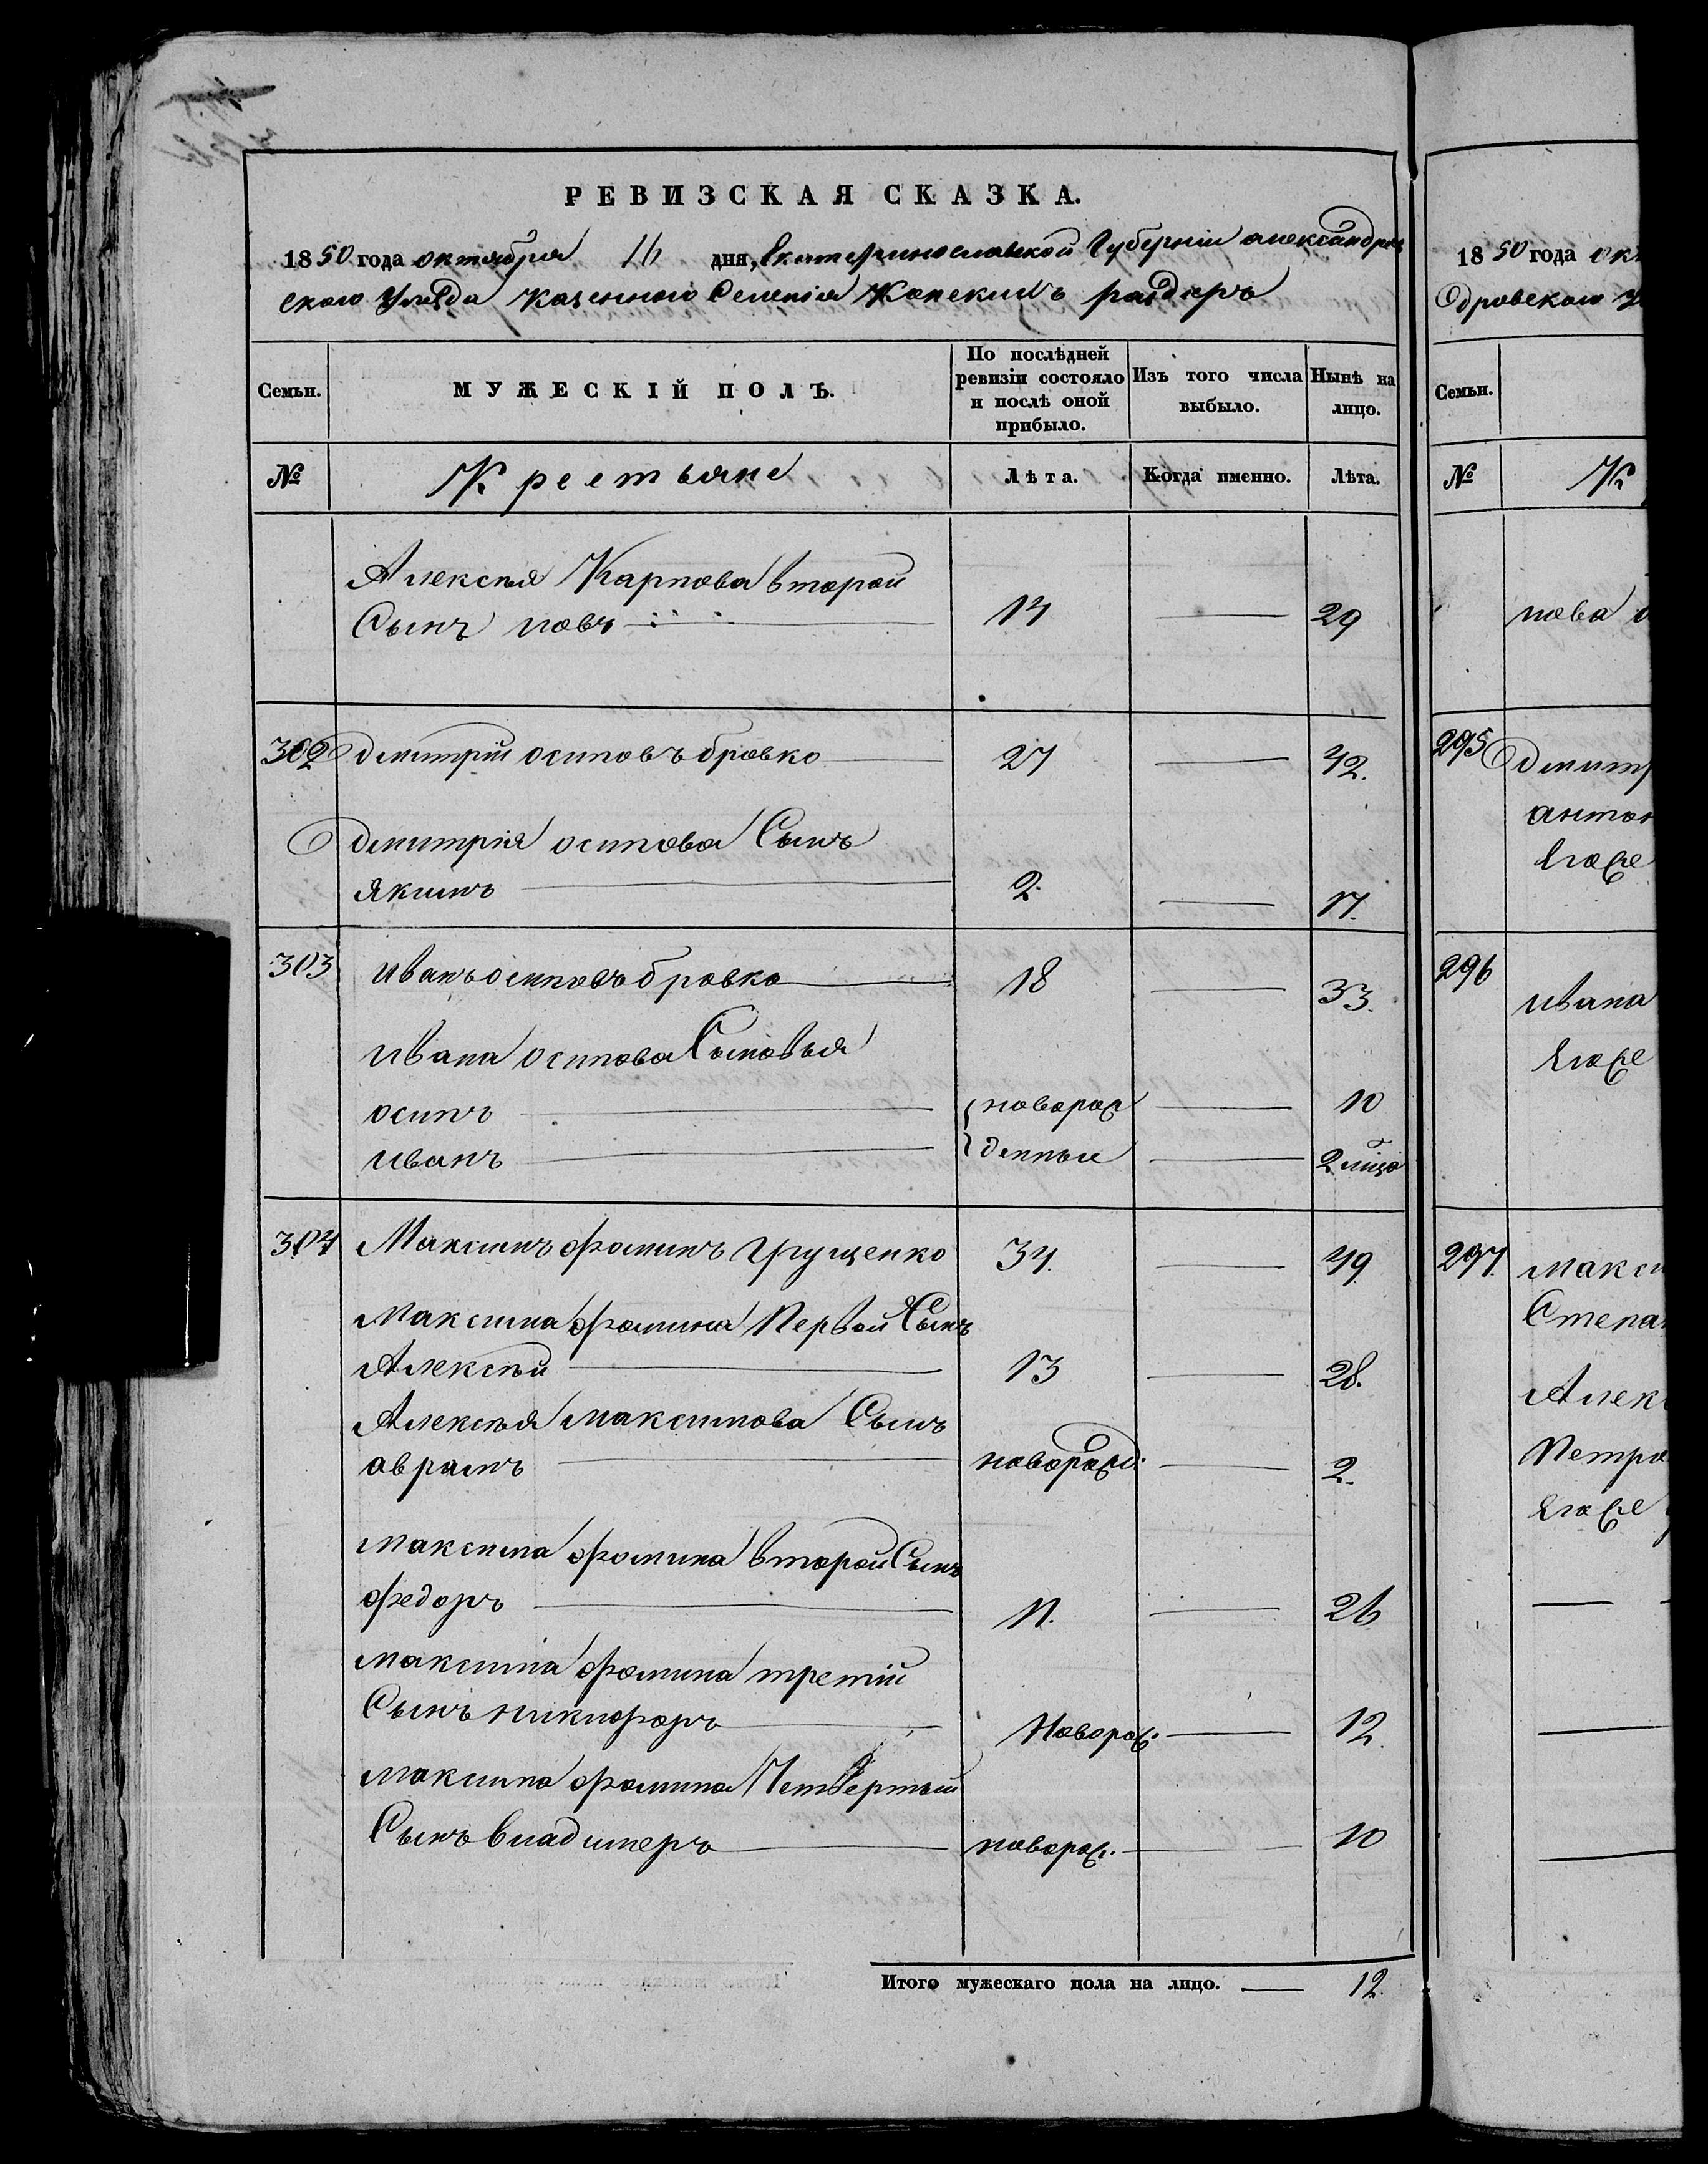 РЕВИЗСКАЯ СКАЗКА.
1850 года октября 16 дня, Екатеринославской Губернии александров
ского Уезда казенного Селения Конекихъ раздоръ
Семьи.
МУЖЕСКІЙ ПОЛЪ.
По послѣдней ревизіи состояло и послѣ оной прибыло.
Изъ того числа выбыло.
Нынѣ на лицо.
№
Крестьяне
Лѣта.
Когда именно.
Лѣта.
Алексѣя Карпова второй
Сынъ 14 29
302 Дмитрій осиповъ бровко 27 42.
Дмитрія осипова Сынъ
якимъ 2 17.
303 иванъ осиповъ бровко 18 33.
ивана осипова Сыновья
осипъ новорож 10
иванъ денныи 2
304 Максимъ фоминъ Грущенко 34. 49
Максима фомина Первой Сынъ
Алексѣй 13 28.
Алексѣя максимова Сынъ
аврамъ новорожд. 2.
максима фомина второй Сынъ
федоръ 11. 26
максима фомина третій
Сынъ никифоръ Новорож. 12.
максима фомина Четвертый
Сынъ владимеръ новорож. 10
Итого мужескаго пола на лицо. 12.
1850 года ок
Дровского у
Семьи.
№
К
пова
295 Дмитр
антон
Егоже
296
ивана
Егоже
297. макси
Степан
Алек
Петро
Егоже